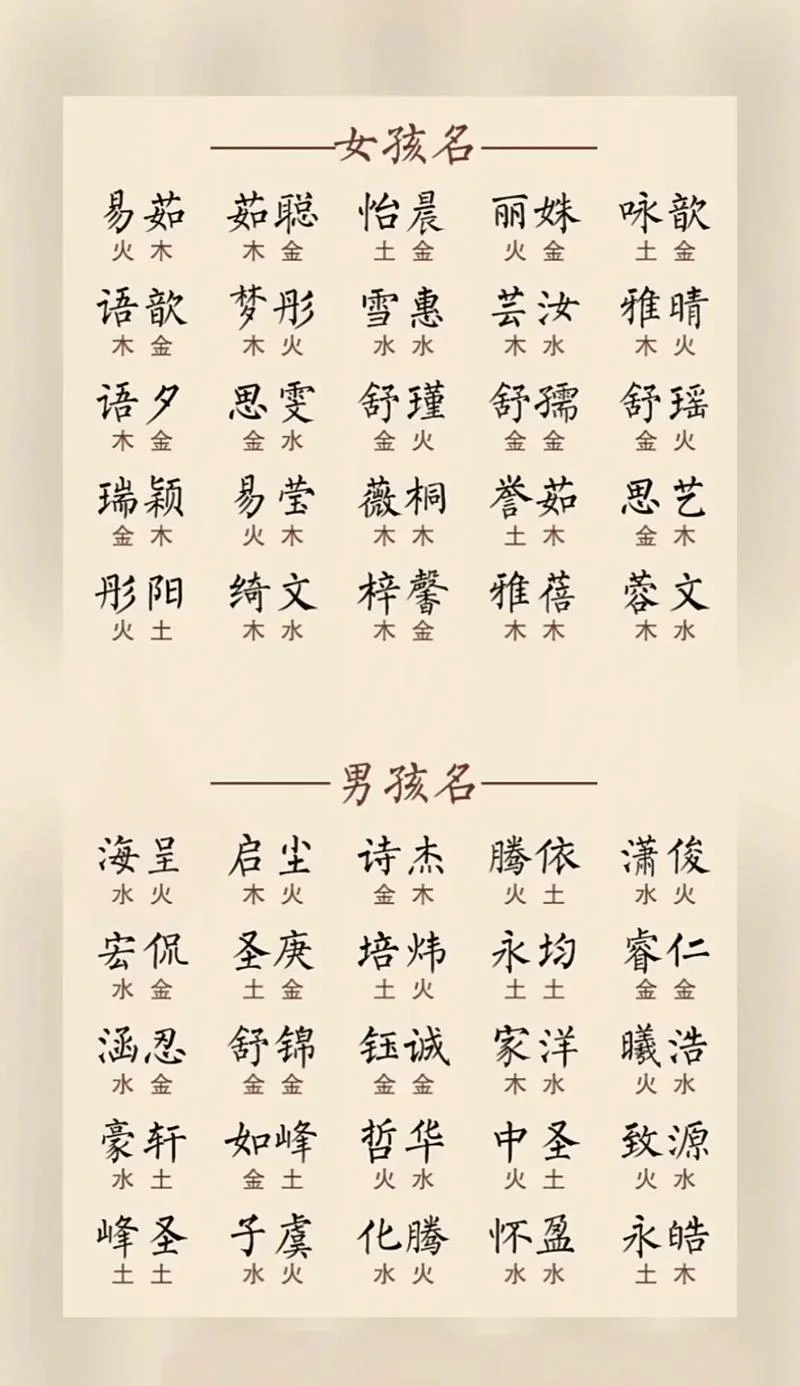 女孩名
易茹 茹聪 怡晨 丽姝 咏歆
火木 木金 土金 火金 土金
语歆 梦彤 雪惠 芸汝 雅晴
木金 木火 水水 木水 木火
语夕 思雯 舒瑾 舒孺 舒瑶
木金 金水 金火 金金 金火
瑞颖 易莹 薇桐 誉茹 思艺
金木 火木 木木 土木 金木
彤阳 绮文 梓馨 雅蓓 蓉文
火土 木水 木金 木木 木水
男孩名
海呈 启尘 诗杰 腾依 潇俊
水火 木火 金木 火土 水火
宏侃 圣庚 培炜 永均 睿仁
水金 土金 土火 土土 金金
涵忍 舒锦 钰诚 家洋 曦浩
水金 金金 金金 木水 火水
豪轩 如峰 哲华 中圣 致源
水土 金土 火水 火土 火水
峰圣 子虞 化腾 怀盈 永皓
土土 水火 水火 水水 土木